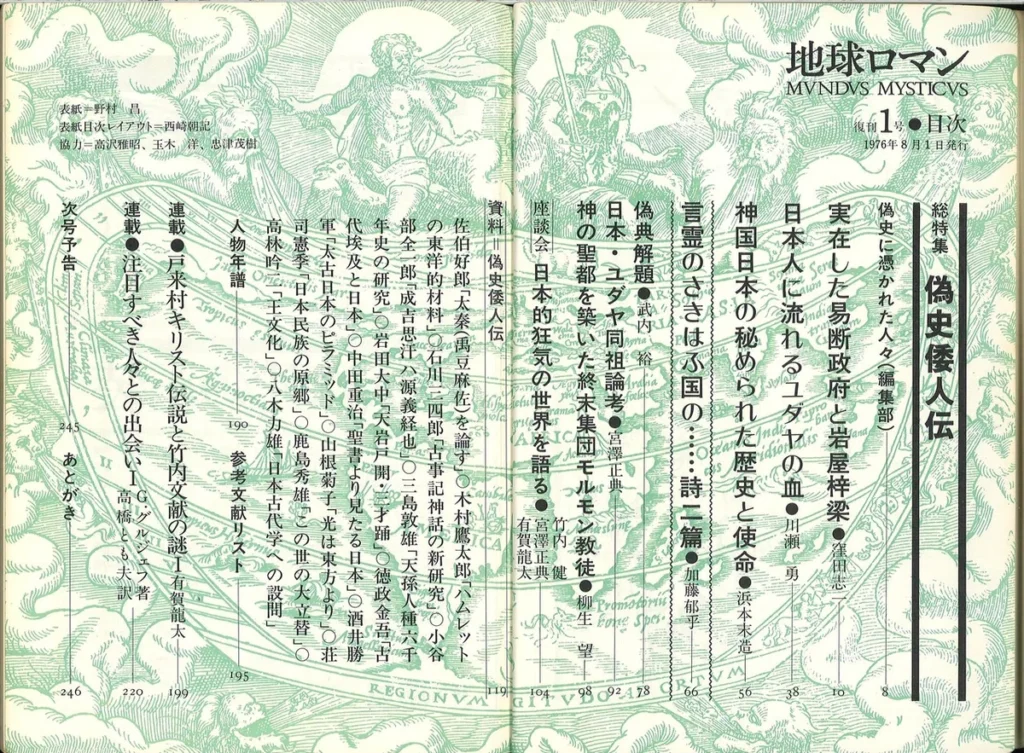 地球ロマン
MVNDVS MYSTICVS
復刊1号●目次
1976年8月1日発行
総特集 偽史倭人伝
偽史に憑かれた人々(編集部) 8
実在した易断政府と岩屋梓梁●窪田志一 10
日本人に流れるユダヤの血●川瀬 勇 38
神国日本の秘められた歴史と使命●浜本末造 56
言霊のさきはふ国の……詩二篇●加藤郁乎 66
偽典解題●武内 裕 78
日本・ユダヤ同祖論考●宮澤正典 92
神の聖都を築いた終末集団モルモン教徒●柳生 望 98
座談会 日本的狂気の世界を語る●竹内 健 宮澤正典 有賀龍太 104
資料=偽史倭人伝 119
佐伯好郎「太秦(禹豆麻佐)を論ず」○木村鷹太郎「ハムレット
の東洋的材料」○石川三四郎「古事記神話の新研究」○小谷
部全一郎「成吉思汗ハ源義経也」○三島敦雄「天孫人種六千
年史の研究」○岩田大中「天岩戸開・三才踊」○徳政金吾「古
代埃及と日本」○中田重治「聖書より見たる日本」○酒井勝
軍「太古日本のピラミッド」○山根菊子「光は東方より」○荘
司憲季「日本民族の原郷」○鹿島秀雄「この世の大立替」○
高林吟二「王文化」○八木力雄「日本古代学への設問」
人物年譜 190 参考文献リスト 195
連載●戸来村キリスト伝説と竹内文献の謎I 有賀龍太 199
連載●注目すべき人々との出会いI G・グルジェフ著 高橋とも夫訳 220
次号予告 245 あとがき 246
表紙=野村 昌
表紙目次レイアウト=西崎朝記
協力=高沢雅昭、玉木 洋、忠津茂樹
REGIONVM